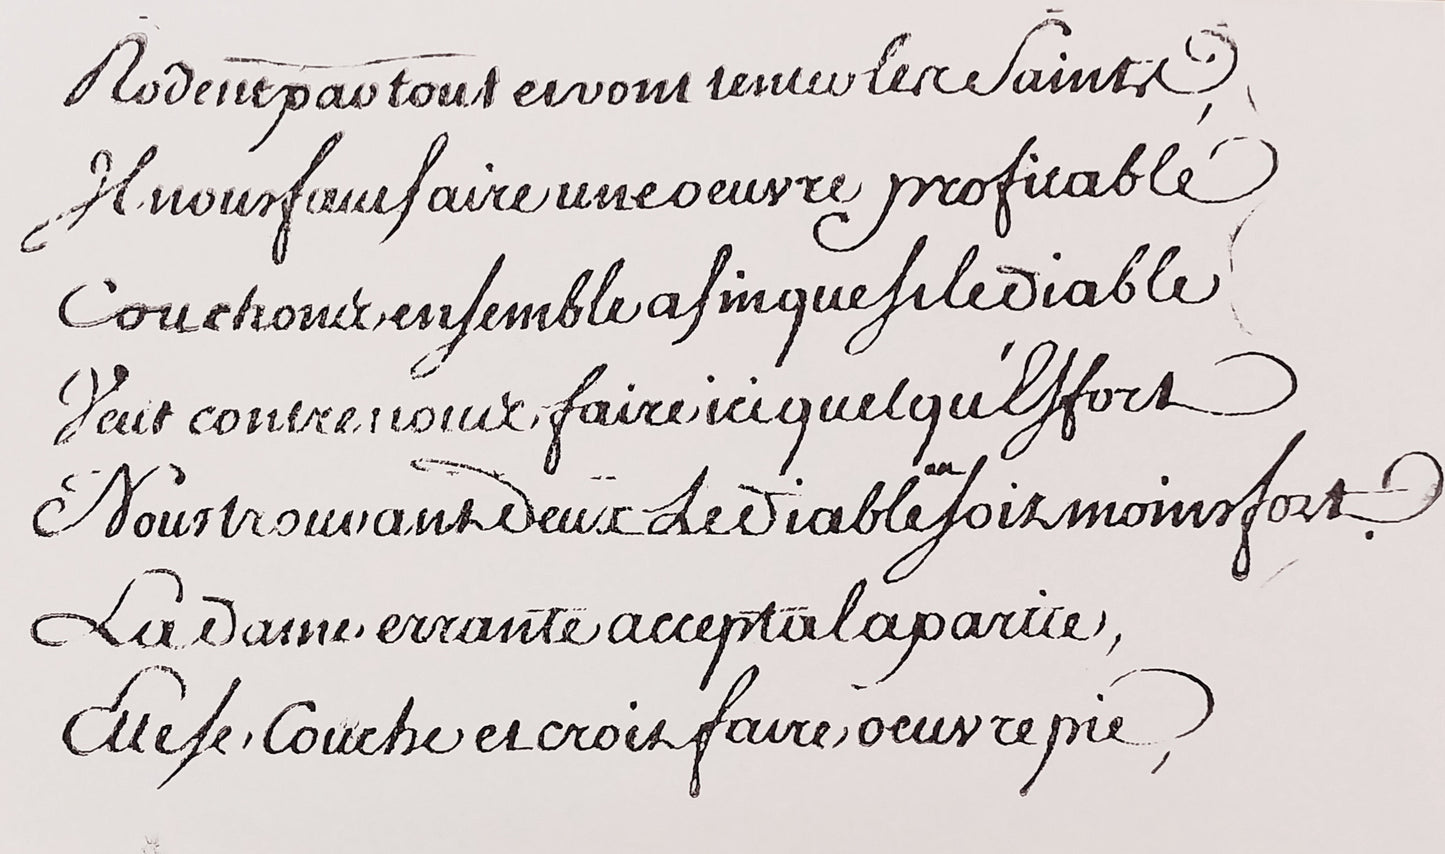 Rodent par tout et vont tenter les Saints,
Il nous faut faire une oeuvre profitable
Couchons ensemble afin que si le diable
Veut contre nous faire ici quelqu'Effort
Nous trouvant deux Le diable soit moins fort.
La dame errante accepta la partie,
Elle se Couche et croit faire oeuvre pie,